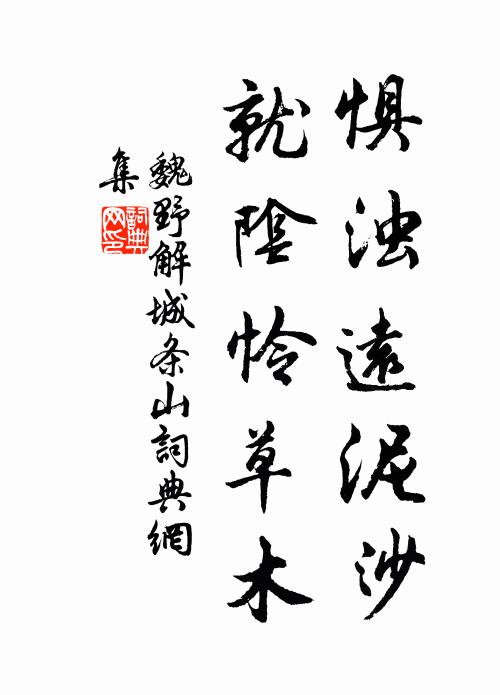 惧浊遠泥沙
就陰怜草木
魏野解城条山詞典網
集
詞典
网印